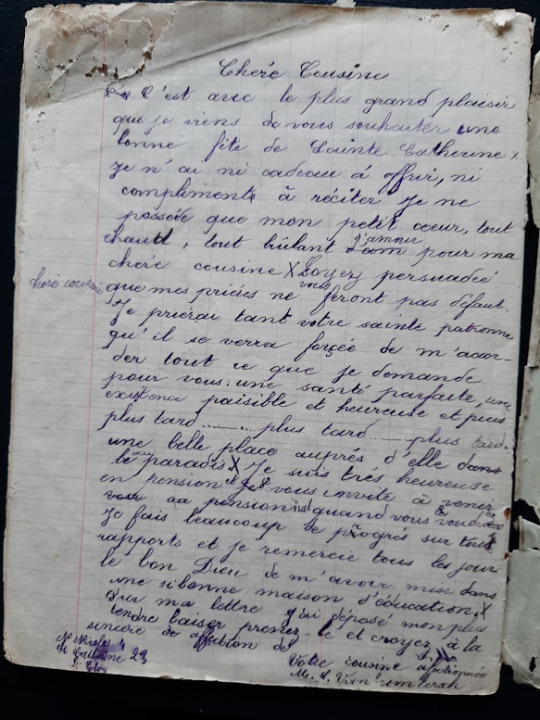 Chere Cousine
C'est avec le plus grand plaisir
que je viens de vous souhaiter une
bonne fête de Sainte Catherine x
Je n'ai ni cadeau à offrir, ni
compliments à réciter Je ne
possède que mon petit coeur, tout
chaud, tout brûlant d'amour pour ma
chère cousine X Soyez persuadée
chère cousine que mes prières ne vous feront pas défaut.
Je prierai tant votre sainte patronne
qu'il se verra forçée de m'accor-
der tout ce que je demande
pour vous: une santé parfaite, une
existence paisible et heureuse et puis
plus tard ......... plus tard ......... plus tard.
une belle place auprés d'elle dans
le paradis X Je suis trés heureuse
en pension et vous invite à venir
au pensionnat quand vous voudrez
Je fais beaucoup de progrès sur tous
rapports et je remercie tous les jours
le bon Dieu de m'avoir mise dans
une si bonne maison d'éducation, X
Sur ma lettre j'ai déposé mon plus
tendre baiser prenez-le et croyez à la
sincère affection de
Votre cousine affectionnée
St Nicolas
Ste Catherine 29
St Eloi